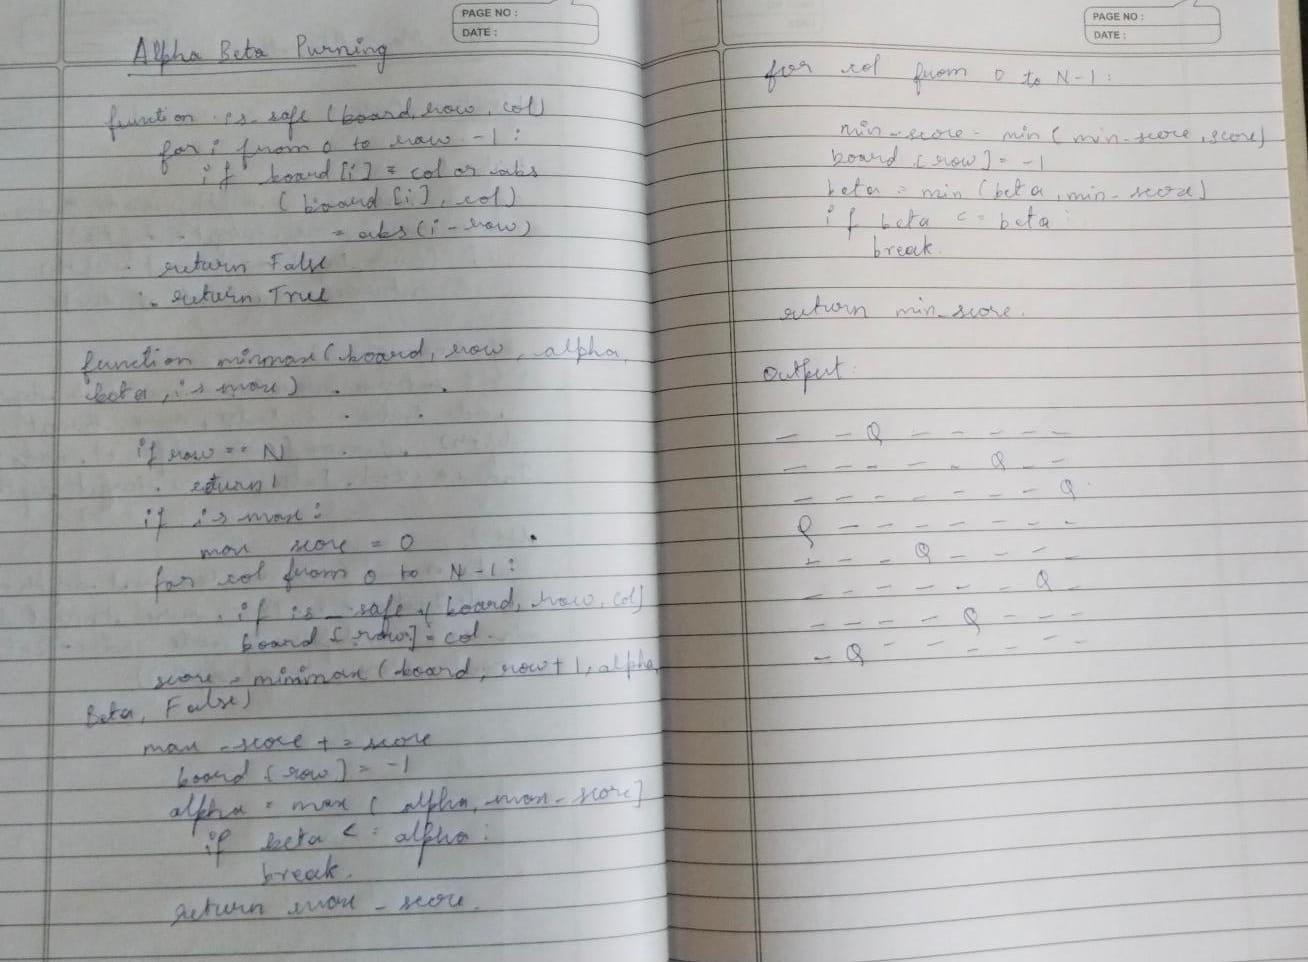 PAGE NO :
DATE :
Alpha Beta Purning
function is_safe (board, row, col)
for i from 0 to row -1 :
if board [i] = col or abs
(board [i], col)
= abs (i - row)
return False
return True
function minmax (board, row, alpha,
beta, is max)
if row == N
return 1
if is max :
max score = 0
for col from 0 to N-1 :
if is _ safe ( board, row, col]
board [row] = col.
score = minimax (board, row + 1, alpha,
Beta, False)
max _score + = score
board [row] = -1
alpha = max ( alpha, max - score]
if beta < = alpha :
break.
return max - score.
PAGE NO :
DATE :
for col from 0 to N-1 :
min - score = min ( min - score, score)
board [row] = -1
beta = min (beta, min - score)
if beta <= beta :
break.
return min_score.
Output :
_ _ _ Q _ _ _ _ _
_ _ _ _ _ Q _ _
_ _ _ _ _ _ _ Q
Q _ _ _ _ _ _ _
_ _ _ Q _ _ _ _
_ _ _ _ _ _ Q _
_ _ _ _ Q _ _ _
_ Q _ _ _ _ _ _